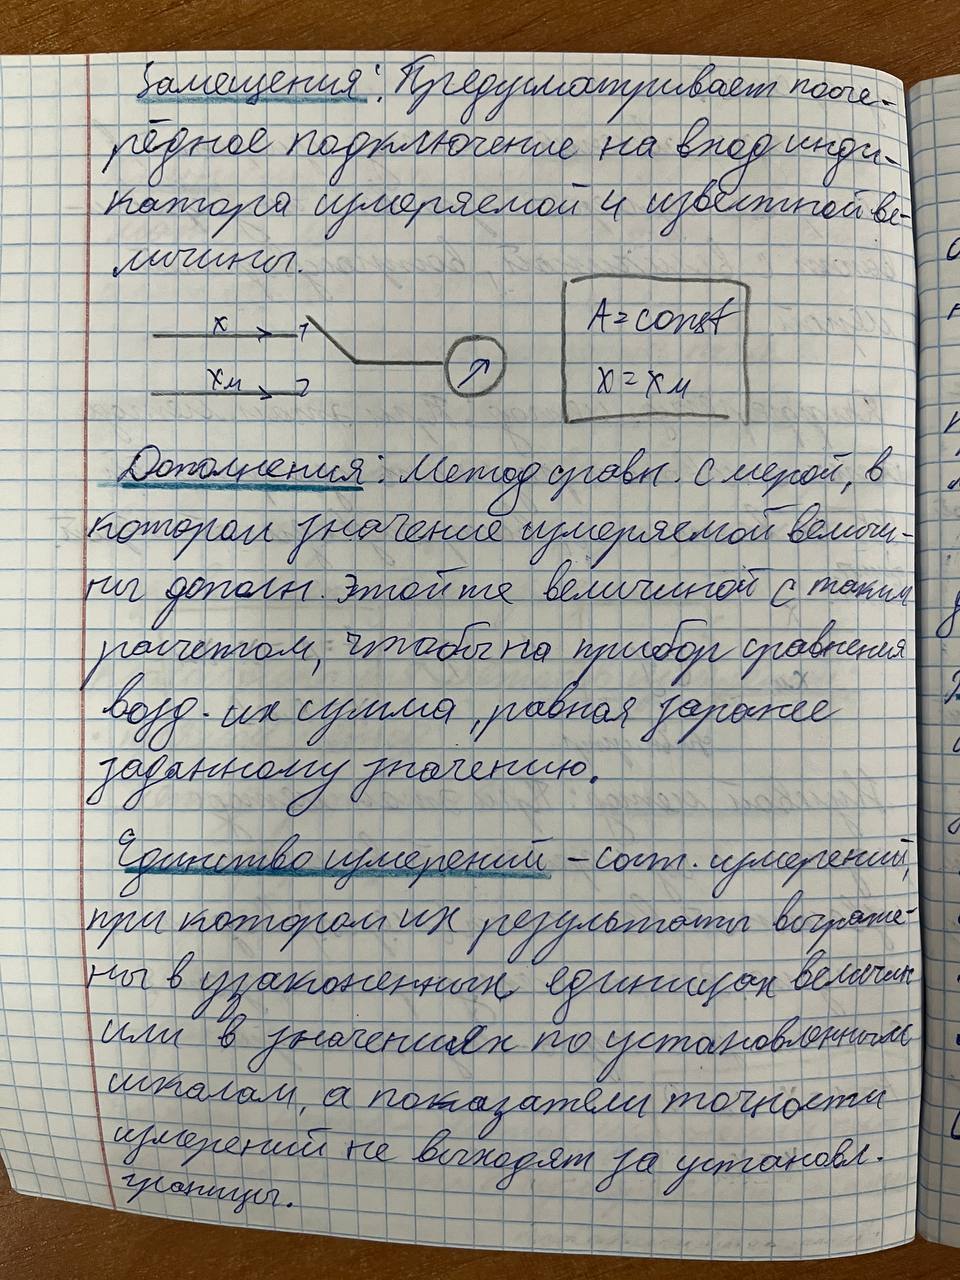 Замещения: Предусматривает пооче-
рёдное подключение на вход инди-
катора измеряемой и известной ве-
личины.
x 1
A=const
xм 2
x=xм
Дополнения: Метод сравн. с мерой, в
котором значение измеряемой величи-
ны дополн. этой же величиной с таким
расчетом, чтобы на прибор сравнения
возд. их сумма, равная заранее
заданному значению.
Единство измерений – сост. измерений,
при котором их результаты выраже-
ны в узаконенных единицах величин
или в значениях по установленным
шкалам, а показатели точности
измерений не выходят за установл.
границы.